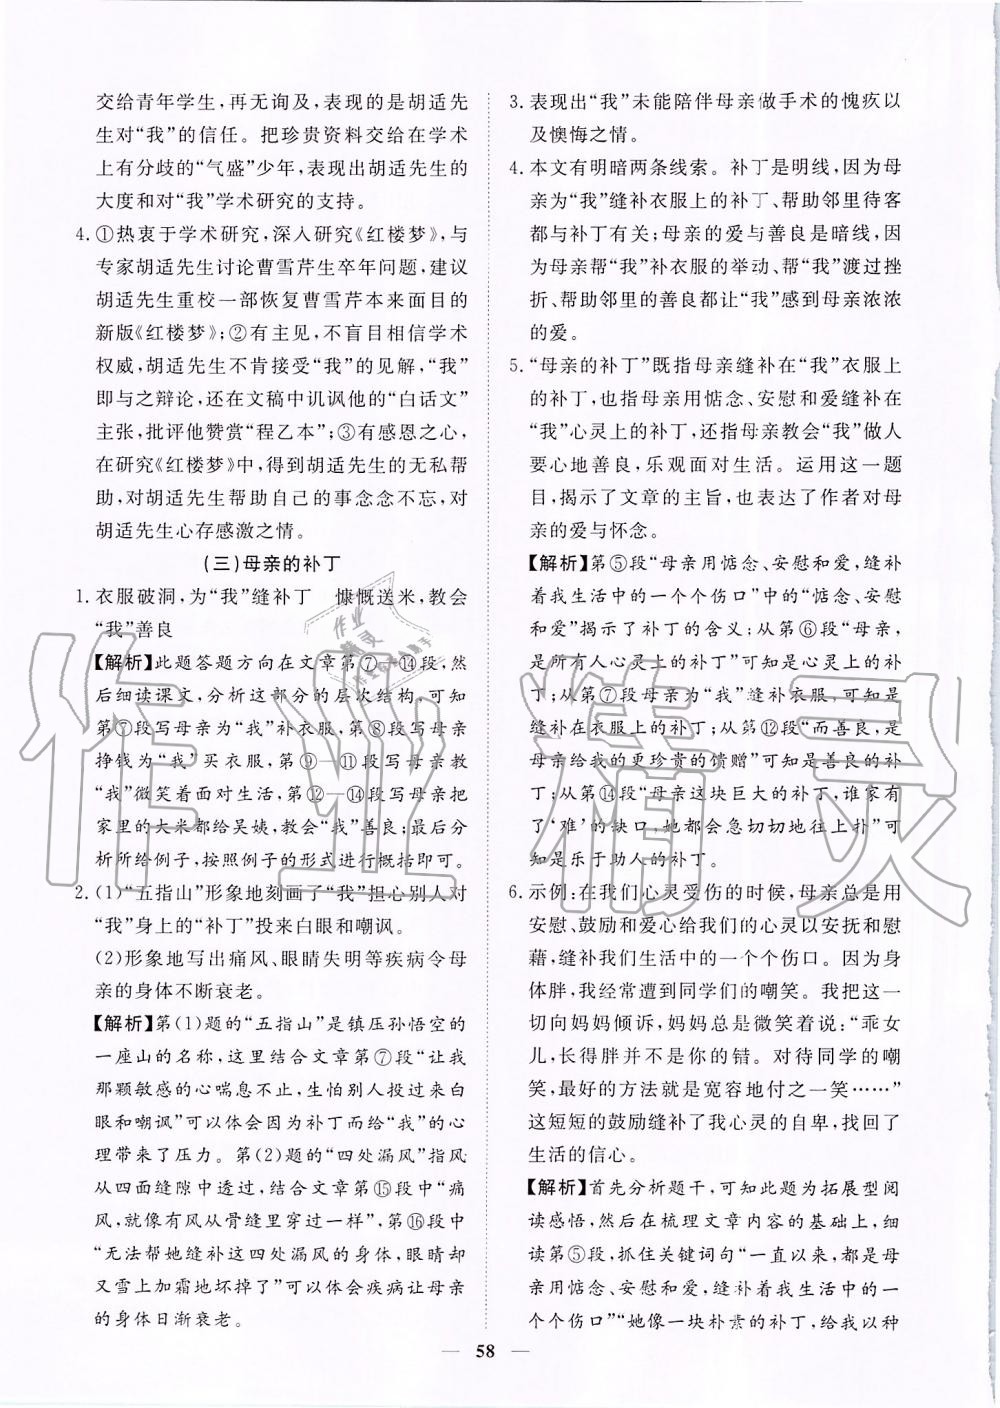 交给青年学生，再无询及，表现的是胡适先
生对“我”的信任。把珍贵资料交给在学术
上有分歧的“气盛”少年，表现出胡适先生的
大度和对“我”学术研究的支持。
4. ①热衷于学术研究，深入研究《红楼梦》，与
专家胡适先生讨论曹雪芹生卒年问题，建议
胡适先生重校一部恢复曹雪芹本来面目的
新版《红楼梦》；②有主见，不盲目相信学术
权威，胡适先生不肯接受“我”的见解，“我”
即与之辩论，还在文稿中讥讽他的“白话文”
主张，批评他赞赏“程乙本”；③有感恩之心，
在研究《红楼梦》中，得到胡适先生的无私帮
助，对胡适先生帮助自己的事念念不忘，对
胡适先生心存感激之情。
(三)母亲的补丁
1. 衣服破洞，为“我”缝补丁　慷慨送米，教会
“我”善良
【解析】此题答题方向在文章第⑦—⑭段，然
后细读课文，分析这部分的层次结构，可知
第⑦段写母亲为“我”补衣服，第⑧段写母亲
挣钱为“我”买衣服，第⑨—⑪段写母亲教
“我”微笑着面对生活，第⑫—⑭段写母亲把
家里的大米都给吴姨，教会“我”善良；最后分
析所给例子，按照例子的形式进行概括即可。
2. (1)“五指山”形象地刻画了“我”担心别人对
“我”身上的“补丁”投来白眼和嘲讽。
(2)形象地写出痛风、眼睛失明等疾病令母
亲的身体不断衰老。
【解析】第(1)题的“五指山”是镇压孙悟空的
一座山的名称，这里结合文章第⑦段“让我
那颗敏感的心喘息不止，生怕别人投过来白
眼和嘲讽”可以体会因为补丁而给“我”的心
理带来了压力。第(2)题的“四处漏风”指风
从四面缝隙中透过，结合文章第⑮段中“痛
风，就像有风从骨缝里穿过一样”，第⑯段中
“无法帮她缝补这四处漏风的身体，眼睛却
又雪上加霜地坏掉了”可以体会疾病让母亲
的身体日渐衰老。
3. 表现出“我”未能陪伴母亲做手术的愧疚以
及懊悔之情。
4. 本文有明暗两条线索。补丁是明线，因为母
亲为“我”缝补衣服上的补丁、帮助邻里待客
都与补丁有关；母亲的爱与善良是暗线，因
为母亲帮“我”补衣服的举动、帮“我”渡过挫
折、帮助邻里的善良都让“我”感到母亲浓浓
的爱。
5. “母亲的补丁”既指母亲缝补在“我”衣服上
的补丁，也指母亲用惦念、安慰和爱缝补在
“我”心灵上的补丁，还指母亲教会“我”做人
要心地善良，乐观面对生活。运用这一题
目，揭示了文章的主旨，也表达了作者对母
亲的爱与怀念。
【解析】第⑤段“母亲用惦念、安慰和爱，缝补
着我生活中的一个个伤口”中的“惦念、安慰
和爱”揭示了补丁的含义；从第⑥段“母亲，
是所有人心灵上的补丁”可知是心灵上的补
丁；从第⑦段母亲为“我”缝补衣服，可知是
缝补在衣服上的补丁；从第⑫段“而善良，是
母亲给我的更珍贵的馈赠”可知是善良的补
丁；从第⑭段“母亲这块巨大的补丁，谁家有
了‘难’的缺口，她都会急切切地往上扑”可
知是乐于助人的补丁。
6. 示例：在我们心灵受伤的时候，母亲总是用
安慰、鼓励和爱心给我们的心灵以安抚和慰
藉，缝补我们生活中的一个个伤口。因为身
体胖，我经常遭到同学们的嘲笑。我把这一
切向妈妈倾诉，妈妈总是微笑着说：“乖女
儿，长得胖并不是你的错。对待同学的嘲
笑，最好的方法就是宽容地付之一笑……”
这短短的鼓励缝补了我心灵的自卑，找回了
生活的信心。
【解析】首先分析题干，可知此题为拓展型阅
读感悟，然后在梳理文章内容的基础上，细
读第⑤段，抓住关键词句“一直以来，都是母
亲用惦念、安慰和爱，缝补着我生活中的一
个个伤口”“她像一块朴素的补丁，给我以种
— 58 —
作业精灵